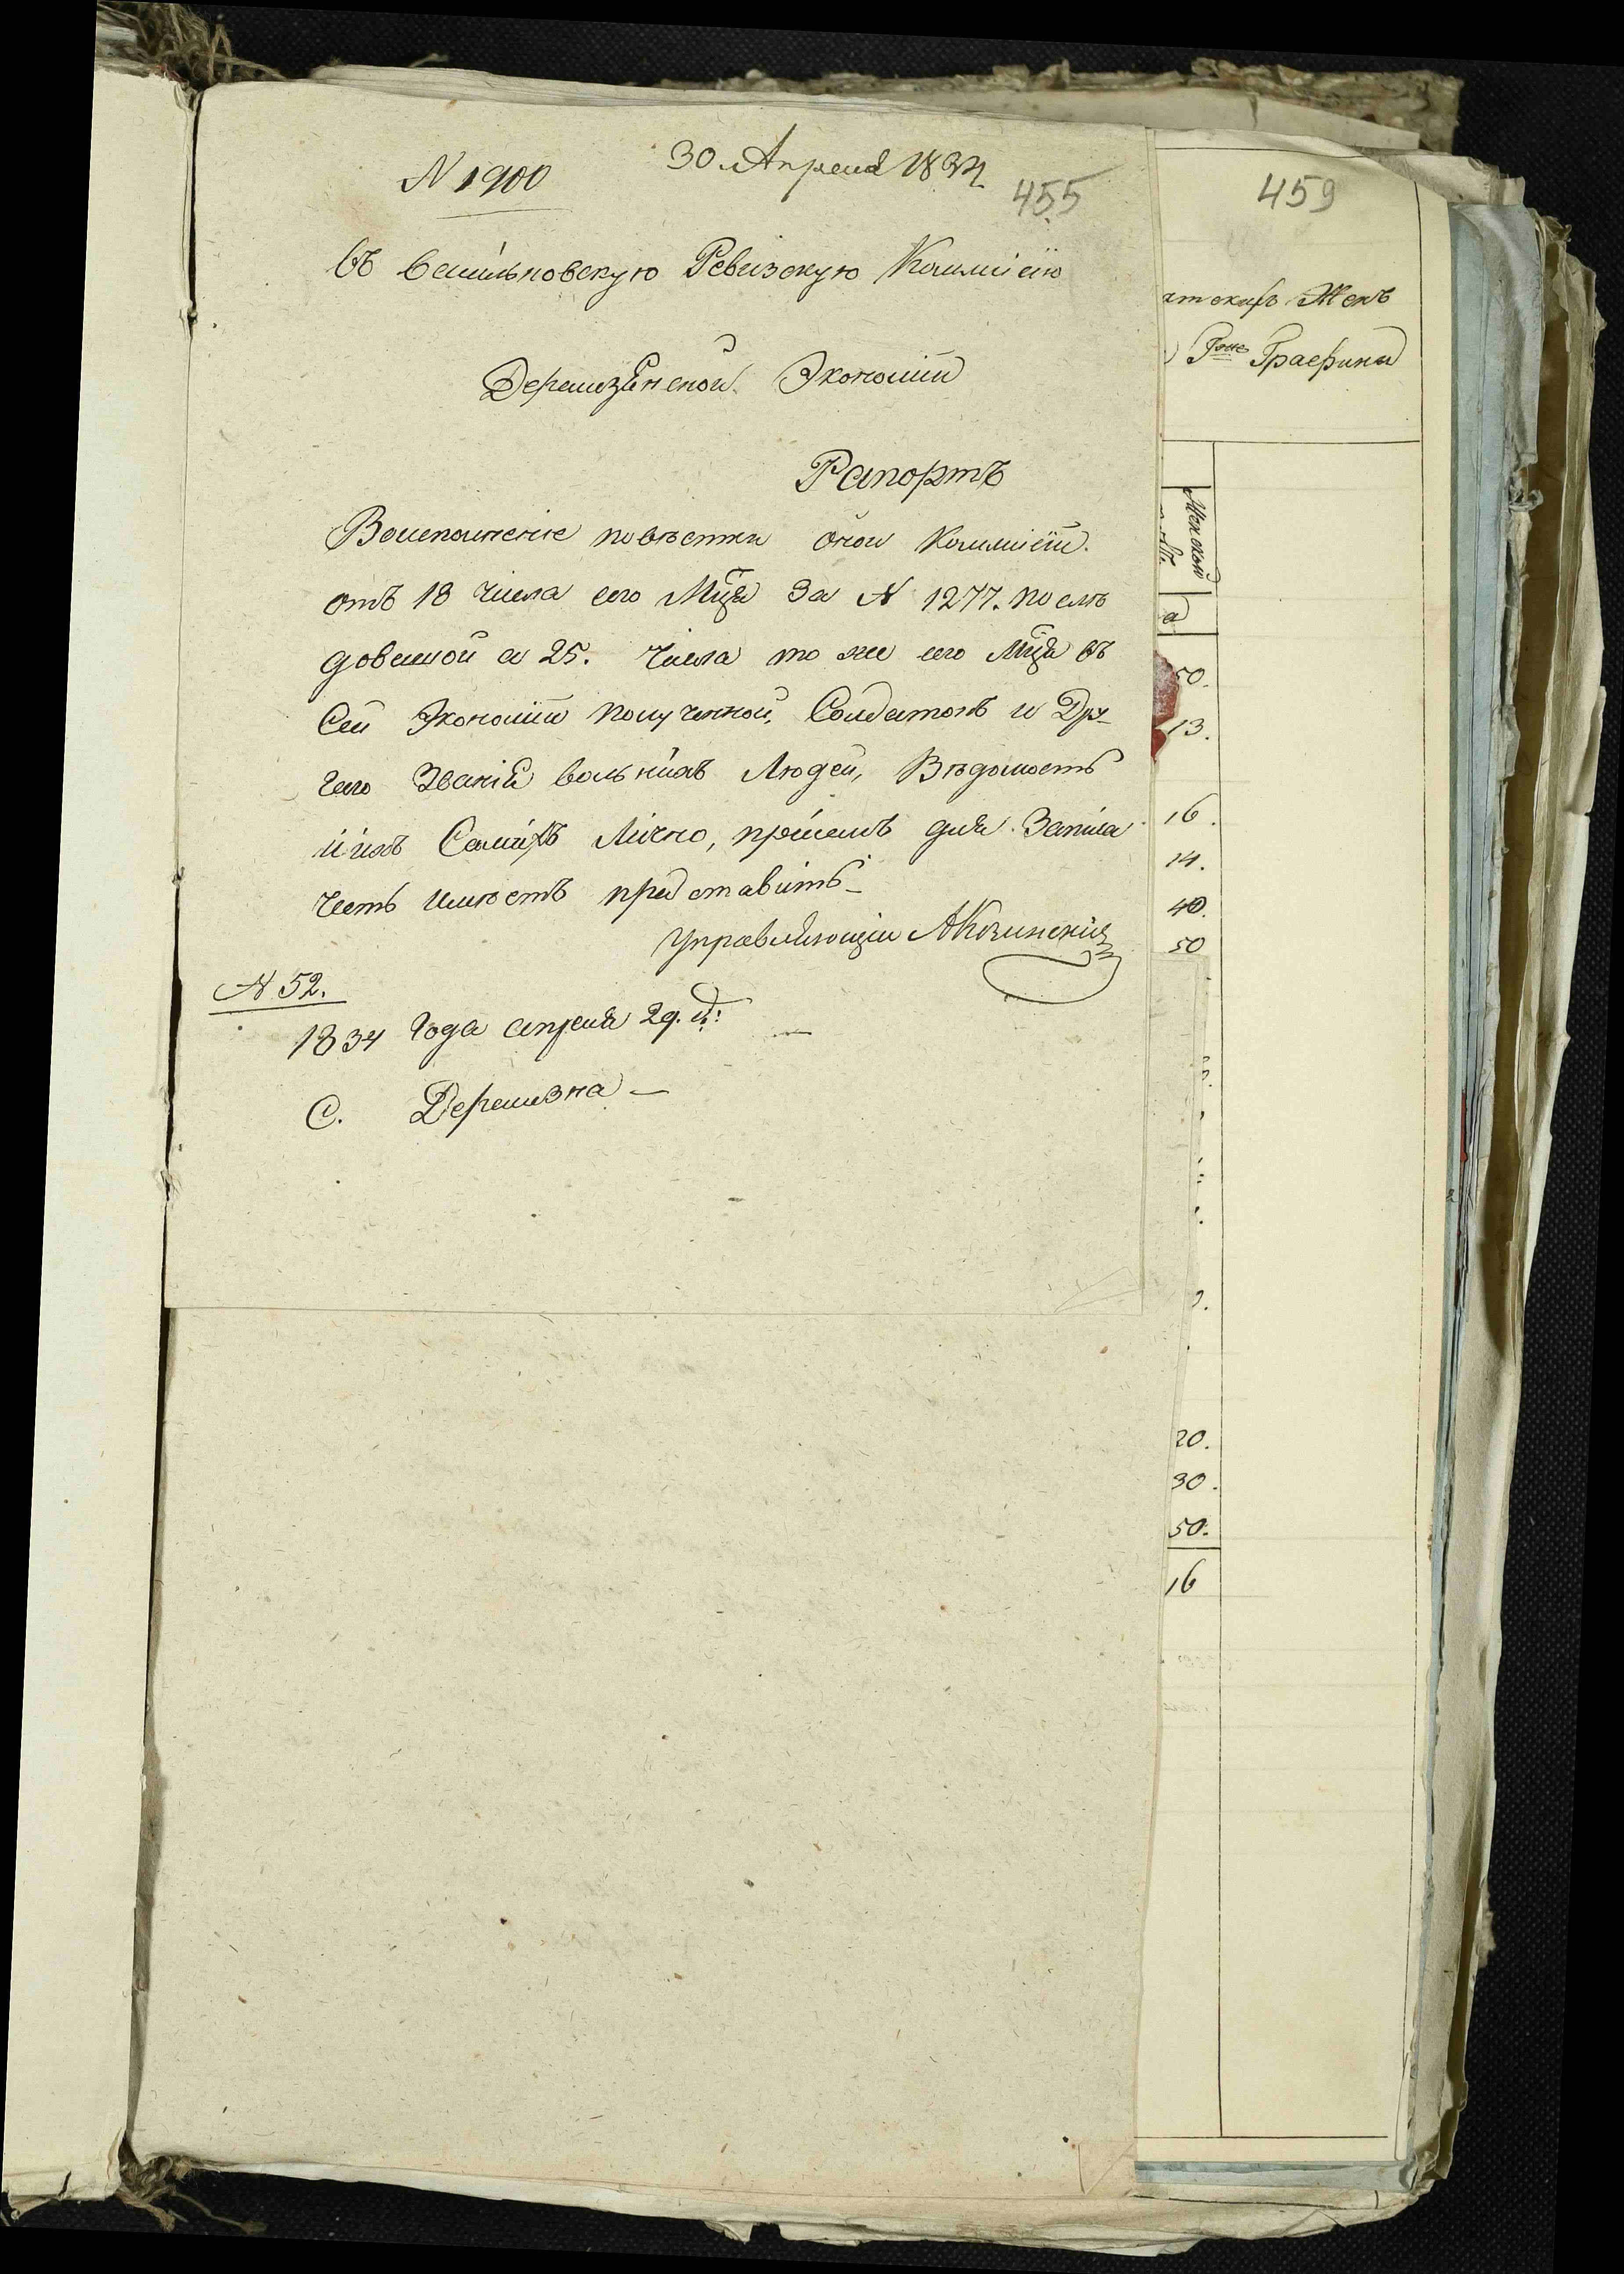 30 Апреля 1834
N 1900
455
въ васильковскую Ревизскую Коммисію
Деремезянской Экономіи
Рапортъ
Воисполненіе повѣстки оной Коммисіи.
отъ 18 числа сего Мца За N 1277. послѣ
довшой а 25. числа то же сего Мца въ
Сей Экономіи полученной, Солдатовъ и Дру-
гого Званія вольніхъ Людей, Вѣдомость
и іхъ Саміхъ Лично, при семъ для Запіса
честь имѣетъ представить
Управляющій АКозинскій
N 52.
1834 Года апреля 29. д:
С. Деремезна
459
Женъ
Графини
Женской
50.
13.
16.
14.
40.
50
20.
30.
50.
16